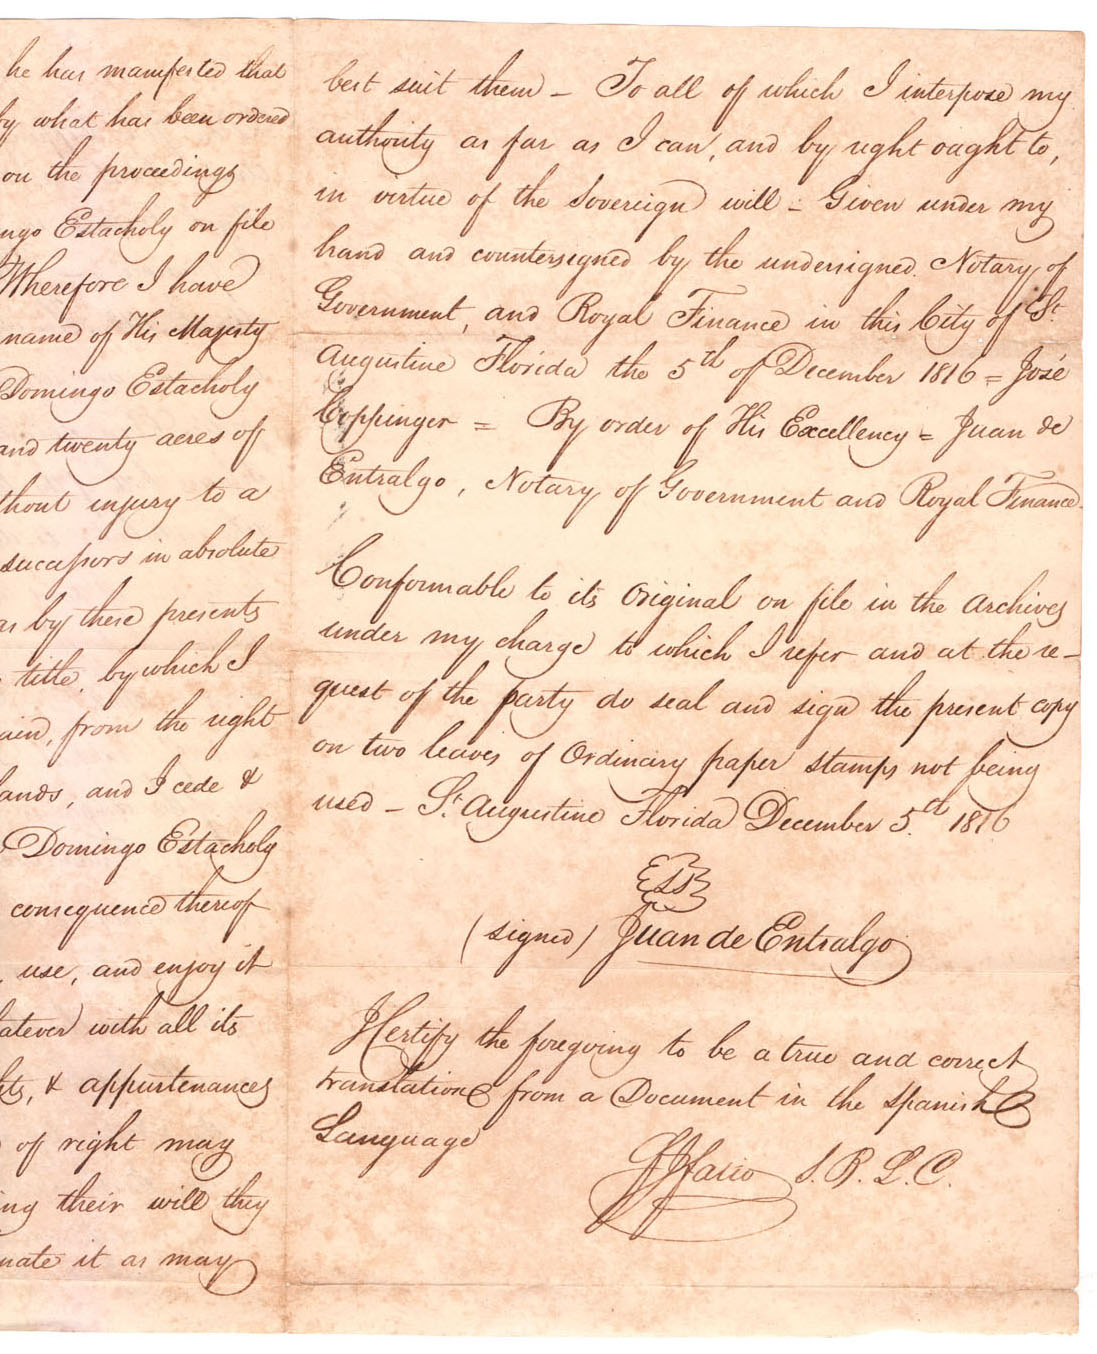 he has manifested that
by what has been ordered
on the proceedings
ngo Estacholy on file
Wherefore I have
name of His Majesty
Domingo Estacholy
and twenty acres of
thout injury to a
successors in absolute
as by these presents
title, by which I
ain, from the right
ands, and I cede &
Domingo Estacholy
consequence thereof
, use, and enjoy it
atever with all its
ts, & appurtenances
of right may
ing their will they
nate it as may
best suit them – To all of which I interpose my
authority as far as I can, and by right ought to,
in virtue of the Sovereign will – Given under my
hand and countersigned by the undersigned Notary of
Government, and Royal Finance in this City of St.
Augustine Florida the 5th of December 1816 = José
Coppinger = By order of His Excellency = Juan de
Entralgo, Notary of Government and Royal Finance.
Conformable to its Original on file in the Archives
under my charge to which I refer and at the re-
quest of the party do seal and sign the present copy
on two leaves of Ordinary paper stamps not being
used – St. Augustine Florida December 5th 1816
(signed) Juan de Entralgo
I Certify the foregoing to be a true and correct
translation from a Document in the Spanish
Language
S. R. L. C.